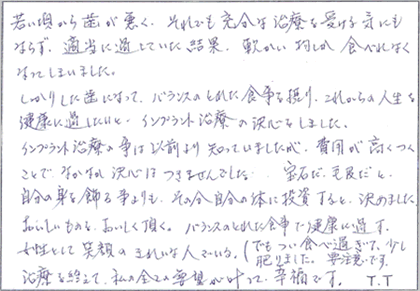 若い頃から歯が悪く、それでも充分な治療を受ける気にも
ならず、適当に過していた結果、軟かい物しか食べれなく
なってしまいました。
しっかりした歯になって、バランスのとれた食事を摂り、これからの人生を
健康に過したいと、インプラント治療の決心をしました。
インプラント治療の事は以前より知っていましたが、費用が高くつく
ことで、なかなか決心はつきませんでした… 宝石だ、毛皮だと、
自分の身を飾る事よりも、その分自分の体に投資すると、決めました。
おいしいものを、おいしく頂く。バランスのとれた食事で健康に過す。
女性として笑顔のきれいな人でいる。(でもつい食べ過ぎて、少し
肥りました。要注意です。
治療を終えて、私の全ての要望が叶って、幸福です。 T.T